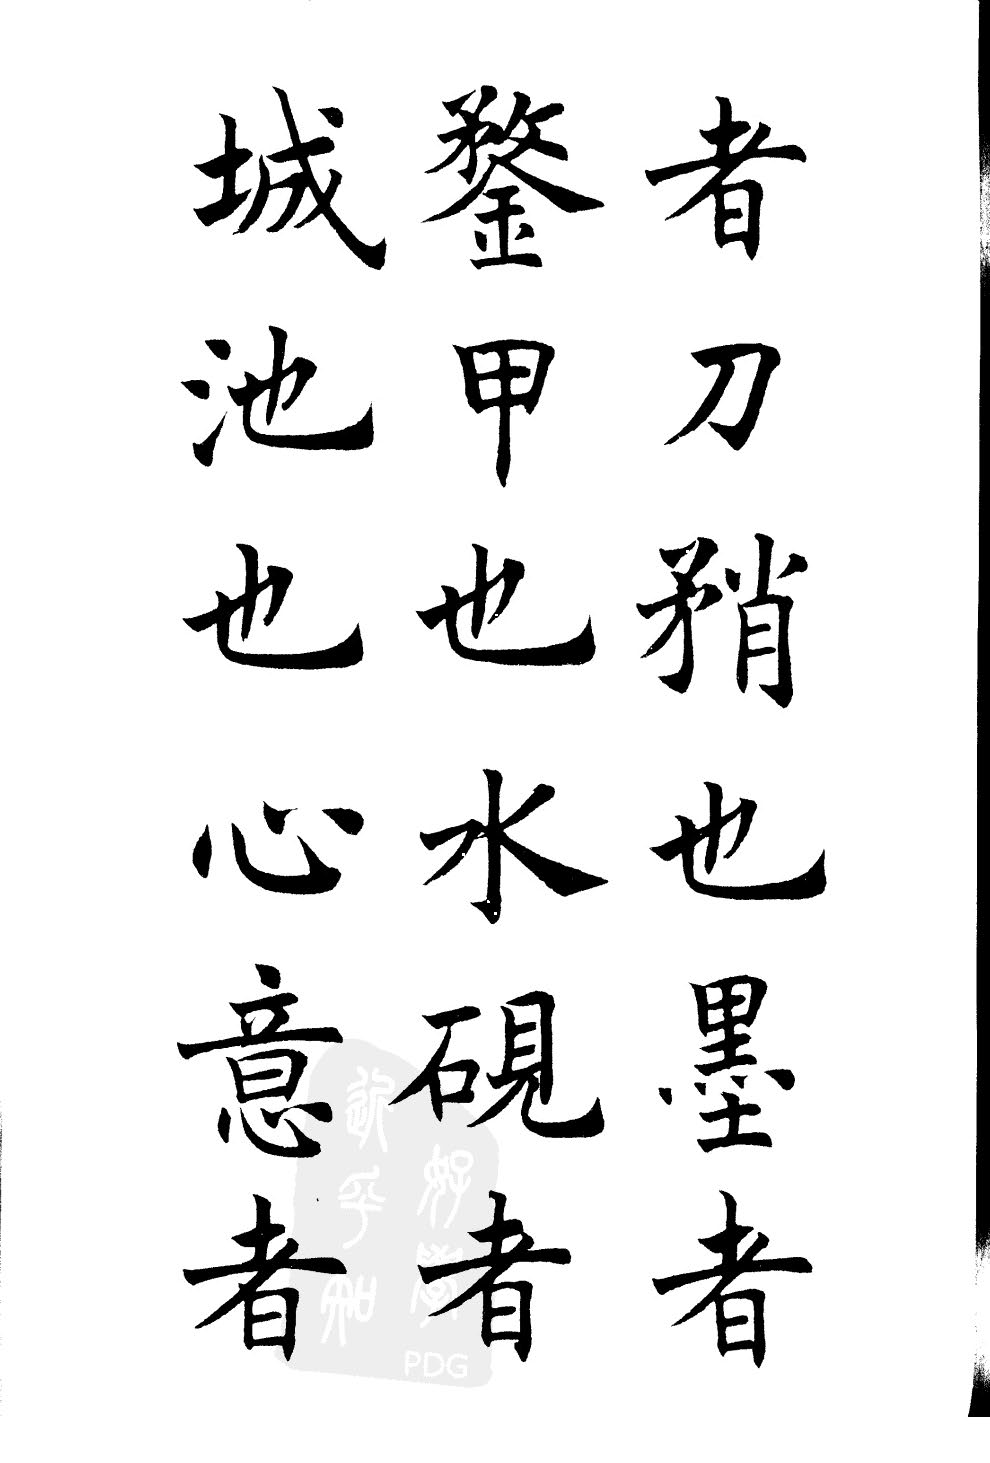 者刀矟也墨者
鍪甲也水硯者
城池也心意者
好學
近乎知
PDG